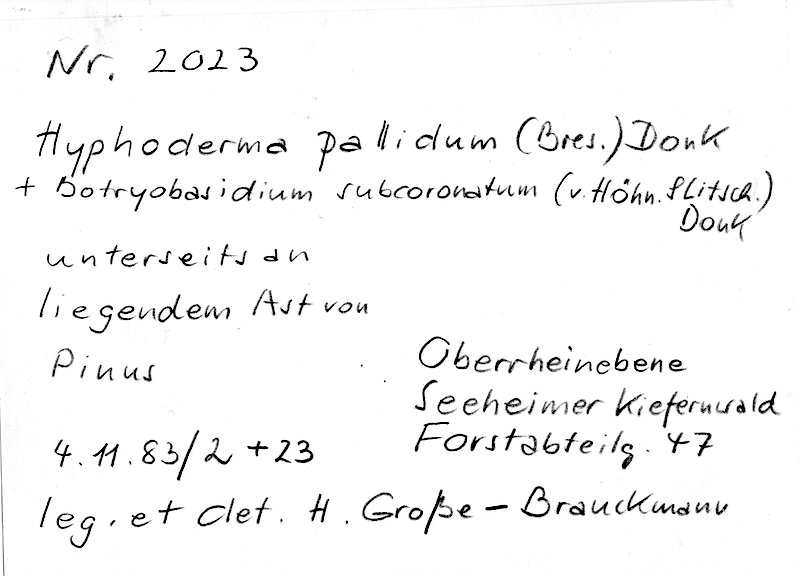 Nr. 2023
Hyphoderma pallidum (Bres.) Donk
+ Botryobasidium subcoronatum (v. Höhn. & Litsch.)
Donk
unterseits an
liegendem Ast von
Pinus
Oberrheinebene
Seeheimer Kiefernwald
Forstabteilg. 47
4.11.83/2 + 23
leg. et det. H. Große-Brauckmann